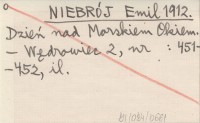 NIEBRÓJ Emil 1912.
Dzień nad Morskiem Okiem.
– Wędrowiec 2, nr : 451-
-452, il.